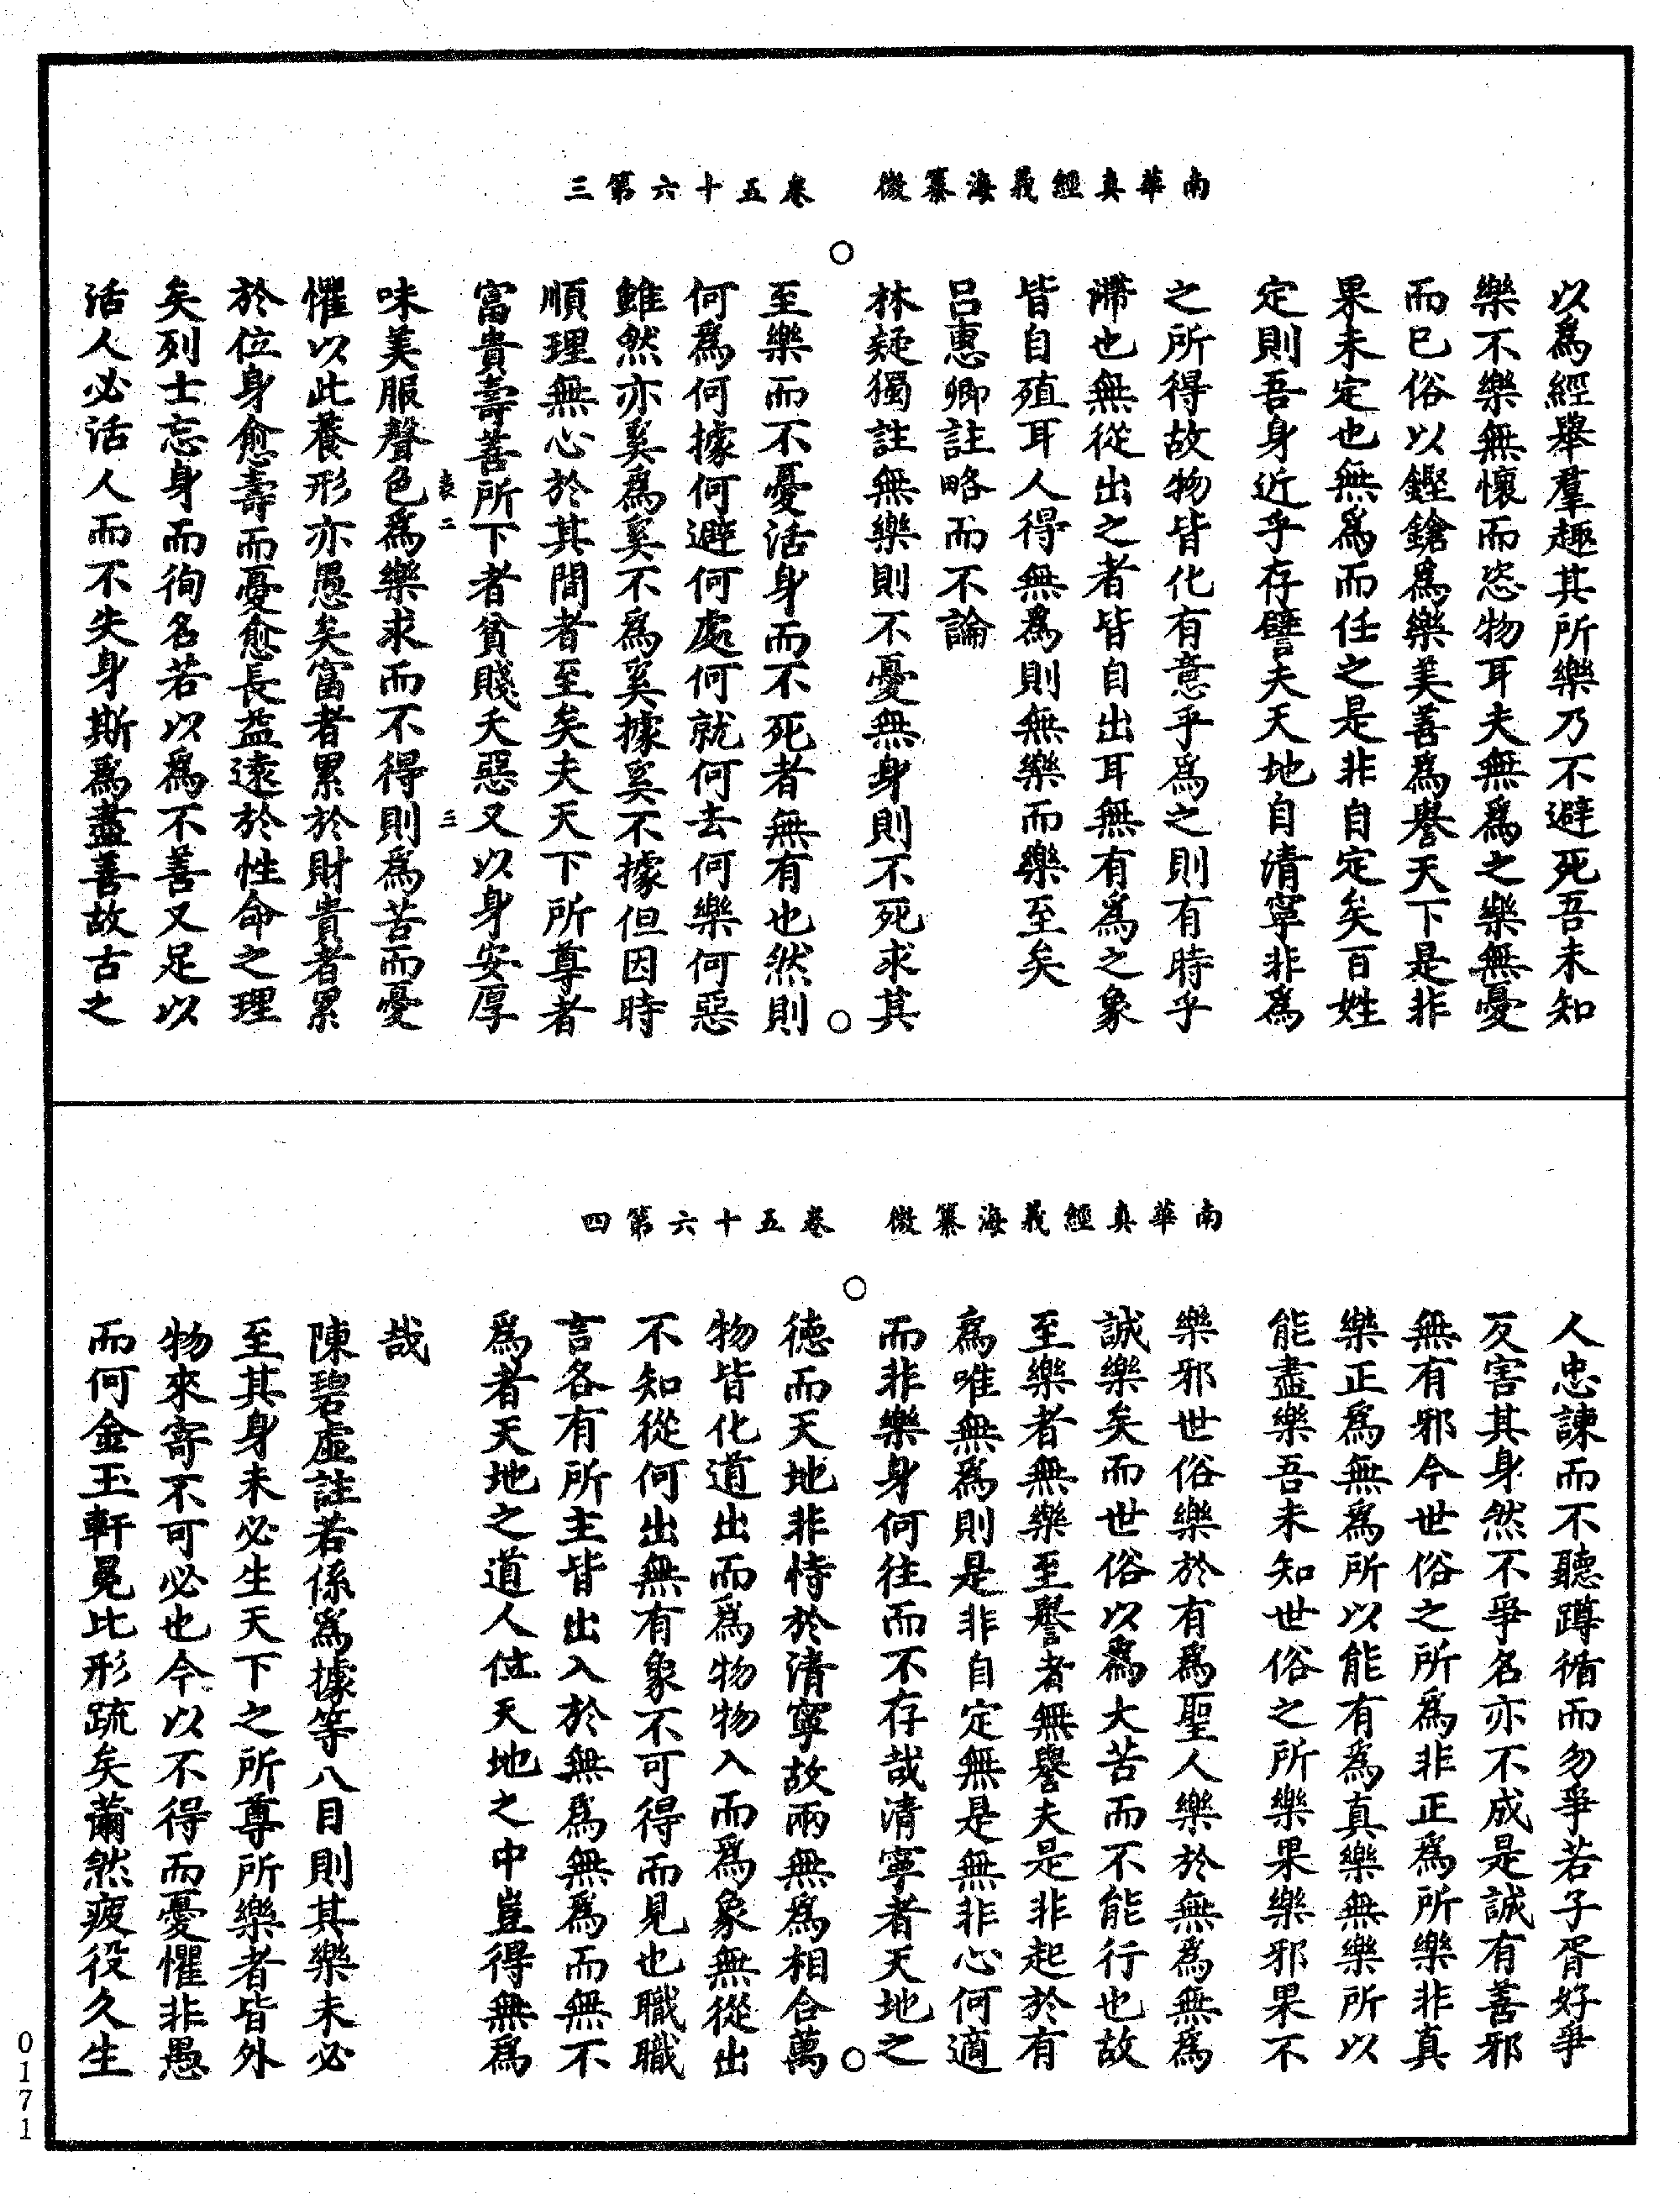 南華真經義海纂微　卷五十六第三
以爲經舉羣趣其所樂乃不避死吾未知
樂不樂無懷而恣物耳夫無爲之樂無憂
而已俗以鏗鎗爲樂美善爲譽天下是非
果未定也無爲而任之是非自定矣百姓
定則吾身近乎存譬夫天地自清寧非爲
之所得故物皆化有意乎爲之則有時乎
滯也無從出之者皆自出耳無有爲之象
皆自殖耳人得無爲則無樂而樂至矣
呂惠卿註略而不論
林疑獨註無樂則不憂無身則不死求其
至樂而不憂活身而不死者無有也然則
何爲何據何避何處何就何去何樂何惡
雖然亦奚爲奚不爲奚據奚不據但因時
順理無心於其間者至矣夫天下所尊者
富貴壽善所下者貧賤夭惡又以身安厚
表二　三
味美服聲色爲樂求而不得則爲苦而憂
懼以此養形亦愚矣富者累於財貴者累
於位身愈壽而憂愈長益遠於性命之理
矣列士忘身而徇名若以爲不善又足以
活人必活人而不失身斯爲盡善故古之
南華真經義海纂微　卷五十六第四
人忠諫而不聽蹲循而勿爭若子胥好爭
反害其身然不爭名亦不成是誠有善邪
無有邪今世俗之所爲非正爲所樂非真
樂正爲無爲所以能有爲真樂無樂所以
能盡樂吾未知世俗之所樂果樂邪果不
樂邪世俗樂於有爲聖人樂於無爲無爲
誠樂矣而世俗以爲大苦而不能行也故
至樂者無樂至譽者無譽夫是非起於有
爲唯無爲則是非自定無是無非心何適
而非樂身何往而不存哉清寧者天地之
德而天地非恃於清寧故兩無爲相合萬
物皆化道出而爲物物入而爲象無從出
不知從何出無有象不可得而見也職職
言各有所主皆出入於無爲無爲而無不
爲者天地之道人位天地之中豈得無爲
哉
陳碧虛註若係爲據等八目則其樂未必
至其身未必生天下之所尊所樂者皆外
物來寄不可必也今以不得而憂懼非愚
而何金玉軒冕比形疏矣薾然疲役久生
0171